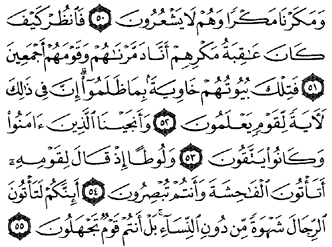 وَمَكَرْنَا مَكْرًا وَهُمْ لَا يَشْعُرُونَ ٥٠ فَٱنظُرْ كَيْفَ
كَانَ عَٰقِبَةُ مَكْرِهِمْ أَنَّا دَمَّرْنَٰهُمْ وَقَوْمَهُمْ أَجْمَعِينَ
٥١ فَتِلْكَ بُيُوتُهُمْ خَاوِيَةًۢ بِمَا ظَلَمُوٓا۟ إِنَّ فِى ذَٰلِكَ
لَءَايَةً لِّقَوْمٍ يَعْلَمُونَ ٥٢ وَأَنجَيْنَا ٱلَّذِينَ ءَامَنُوا۟
وَكَانُوا۟ يَتَّقُونَ ٥٣ وَلُوطًا إِذْ قَالَ لِقَوْمِهِۦٓ
أَتَأْتُونَ ٱلْفَٰحِشَةَ وَأَنتُمْ تُبْصِرُونَ ٥٤ أَئِنَّكُمْ لَتَأْتُونَ
ٱلرِّجَالَ شَهْوَةً مِّن دُونِ ٱلنِّسَآءِ ۚ بَلْ أَنتُمْ قَوْمٌ تَجْهَلُونَ
٥٥